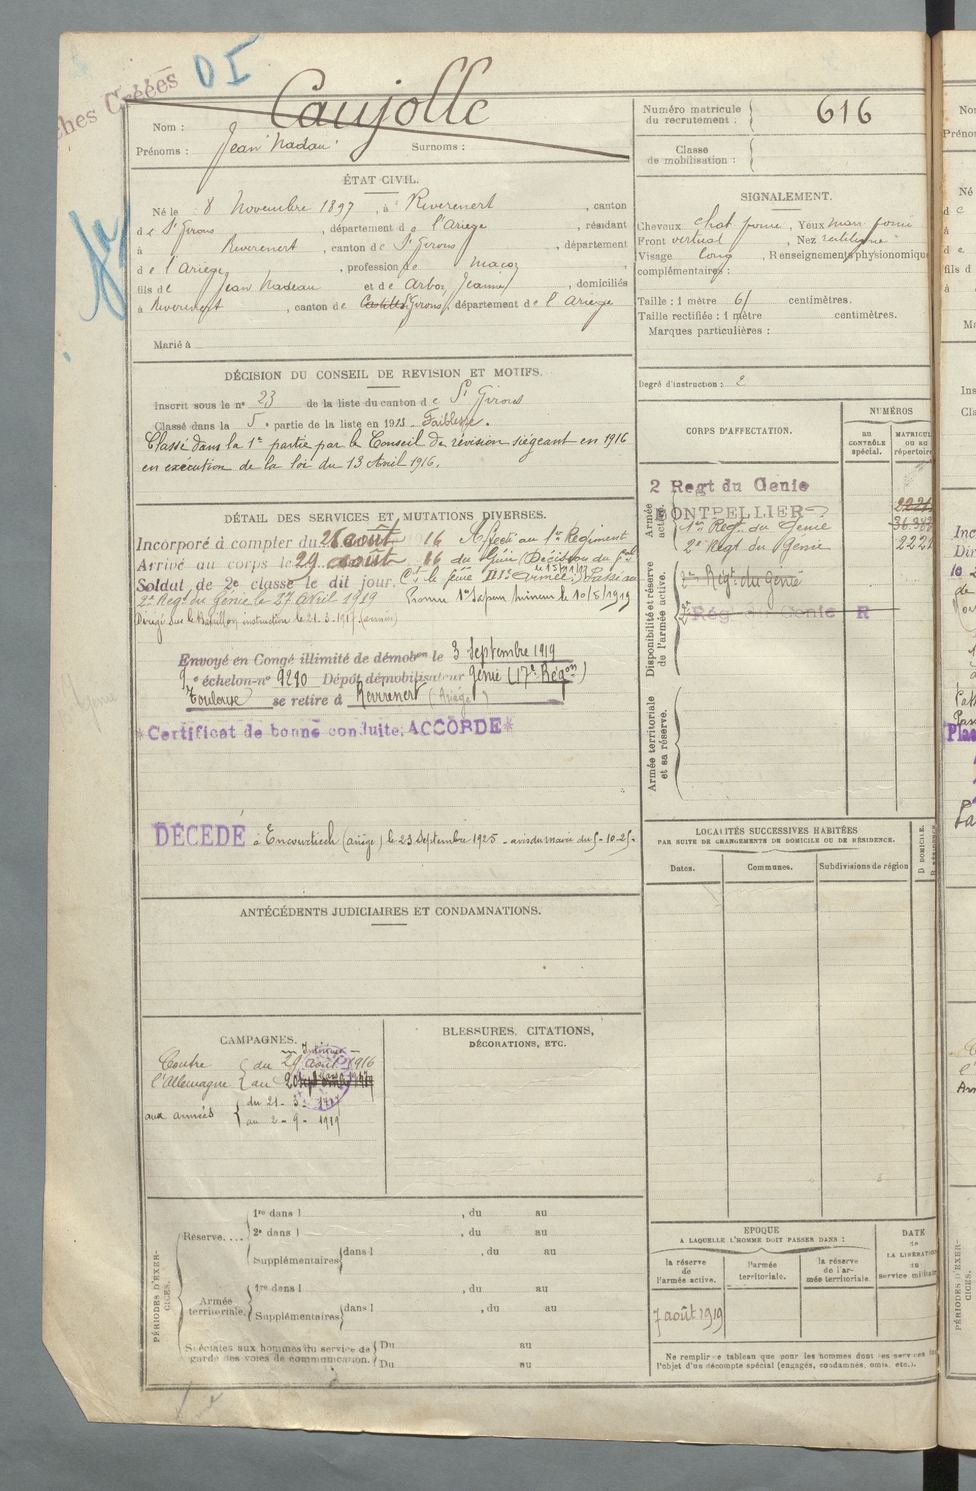 ches Créées
D I
Caujolle
Nom :
Prénoms : Jean Nadau Surnoms :
Numéro matricule
du recrutement : 616
Classe
de mobilisation :
ÉTAT CIVIL.
Né le 8 Novembre 1897, à Riverenert, canton
de St Girons, département de l'Ariège, résidant
à Riverenert, canton de St Girons, département
de l'Ariège, profession de maçon
fils de Jean Nadeau et de Arbos, Jeanne, domiciliés
à Riverenert, canton de St Girons, département de l'Ariège
Marié à
SIGNALEMENT.
Cheveux chat foncé, Yeux mar. foncé
Front vertical, Nez rectiligne
Visage long, Renseignements physionomiques
complémentaires :
Taille : 1 mètre 61 centimètres.
Taille rectifiée : 1 mètre centimètres.
Marques particulières :
Degré d'instruction : 2
DÉCISION DU CONSEIL DE REVISION ET MOTIFS.
Inscrit sous le no 23 de la liste du canton de St Girons
Classé dans la 5e partie de la liste en 191 Faiblesse.
Classé dans la 1e partie par le Conseil de révision siégeant en 1916
en exécution de la loi du 13 Avril 1916.
CORPS D'AFFECTATION.
NUMÉROS
AU CONTRÔLE spécial.
MATRICULE OU AU répertoire
Armée active.
2 Regt du Genie
MONTPELLIER
1er Regt du Génie
2e Regt du Génie 2221
Disponibilité et réserve de l'armée active.
Régt du Génie
2e Rég du Genie R
Armée territoriale et sa réserve.
DÉTAIL DES SERVICES ET MUTATIONS DIVERSES.
Incorporé à compter du 26 août 16 Affecté au 1er Régiment
Arrivé au corps le 29 août 16 du Génie (Décision du Gal
Soldat de 2e classe le dit jour. Ct le Armée) Passé au
2e Regt du Génie le 27 Avril 1919 Promu 1er Sapeur Mineur le 10/5/1919
Dirigé sur le Bataillon instruction le 21-3-1917 (armées)
Envoyé en Congé illimité de démobon le 3 Septembre 1919
9e échelon no 9290 Dépôt démobilisateur Génie (17e Région)
Toulouse se retire à Riverenert (Ariège)
*Certificat de bonne conduite, ACCORDÉ*
DÉCÉDÉ à Encourtiech (Ariège) le 23 Septembre 1925 - avis du maire du 5-10-25-
LOCALITÉS SUCCESSIVES HABITÉES
PAR SUITE DE CHANGEMENTS DE DOMICILE OU DE RÉSIDENCE.
Dates.
Communes.
Subdivisions de région
D DOMICILE.
ANTÉCÉDENTS JUDICIAIRES ET CONDAMNATIONS.
CAMPAGNES.
Intérieur
Contre du 29 août 1916
l'Allemagne au 20
aux armées du 21-3-1917
au 2-9-1919
BLESSURES, CITATIONS,
DÉCORATIONS, ETC.
PÉRIODES D'EXERCICES.
Réserve....
1re dans l , du au
2e dans l , du au
Supplémentaires dans l , du au
Armée territoriale.
1re dans l , du au
Supplémentaires dans l , du au
Spéciales aux hommes du service de Du au
garde des voies de communication. Du au
EPOQUE
A LAQUELLE L'HOMME DOIT PASSER DANS :
la réserve de l'armée active.
l'armée territoriale.
la réserve de l'armée territoriale.
DATE de LA LIBÉRATION du service militaire
7 août 1919
Ne remplir ce tableau que pour les hommes dont les services
l'objet d'un décompte spécial (engagés, condamnés, omis, etc.).